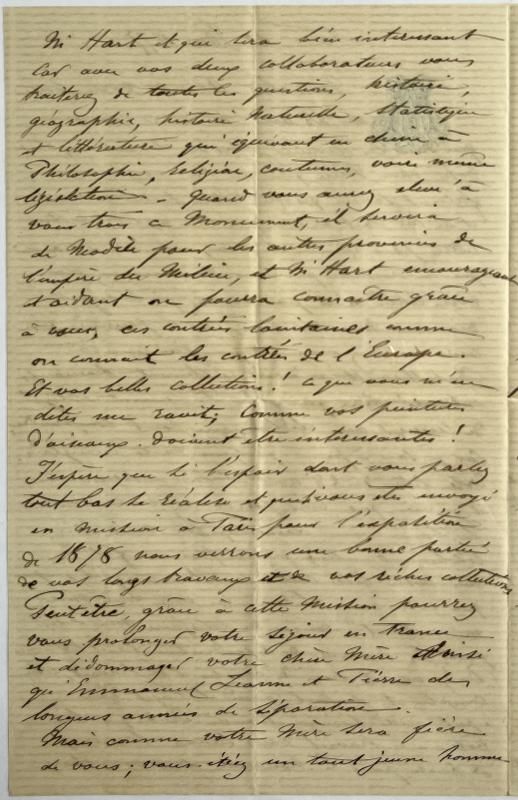 Mr Hart et qui sera bien interessant
car avec vos deux collaborateurs vous
traiterez de toutes les questions, histoire,
géographie, histoire Naturelle, Statistique
et littérature qui équivaut en chine à
Philosophie, religion, coutumes, voire même
législation - Quand vous aurez élevé à
vous trois ce Monument, il servira
de Modèle pour les autres provinces de
l'empire du Milieu, et Mr Hart encourageant
et aidant on pourra connaître grâce
à vous, ces contrées lointaines comme
on connait les contrées de l'Europe.
Et vos belles collections! ce que vous m'en
dites me ravit; Comme vos peintures
d'oiseaux doivent être interessantes!
J'espère que si l'espoir dont vous parlez
tout bas se réalise et que vous êtes envoyé
en mission à Paris pour l'exposition
de 1878 nous verrons une bonne partie
de vos longs travaux et de vos riches collections
Peut être, grâce à cette Mission pourrez
vous prolonger votre séjour en France
et dédommager votre chère Mère ainsi
qu'Emmanuel Jeanne et Pierre des
longues années de séparation.
Mais comme votre Mère sera fière
de vous; vous étiez un tout jeune homme